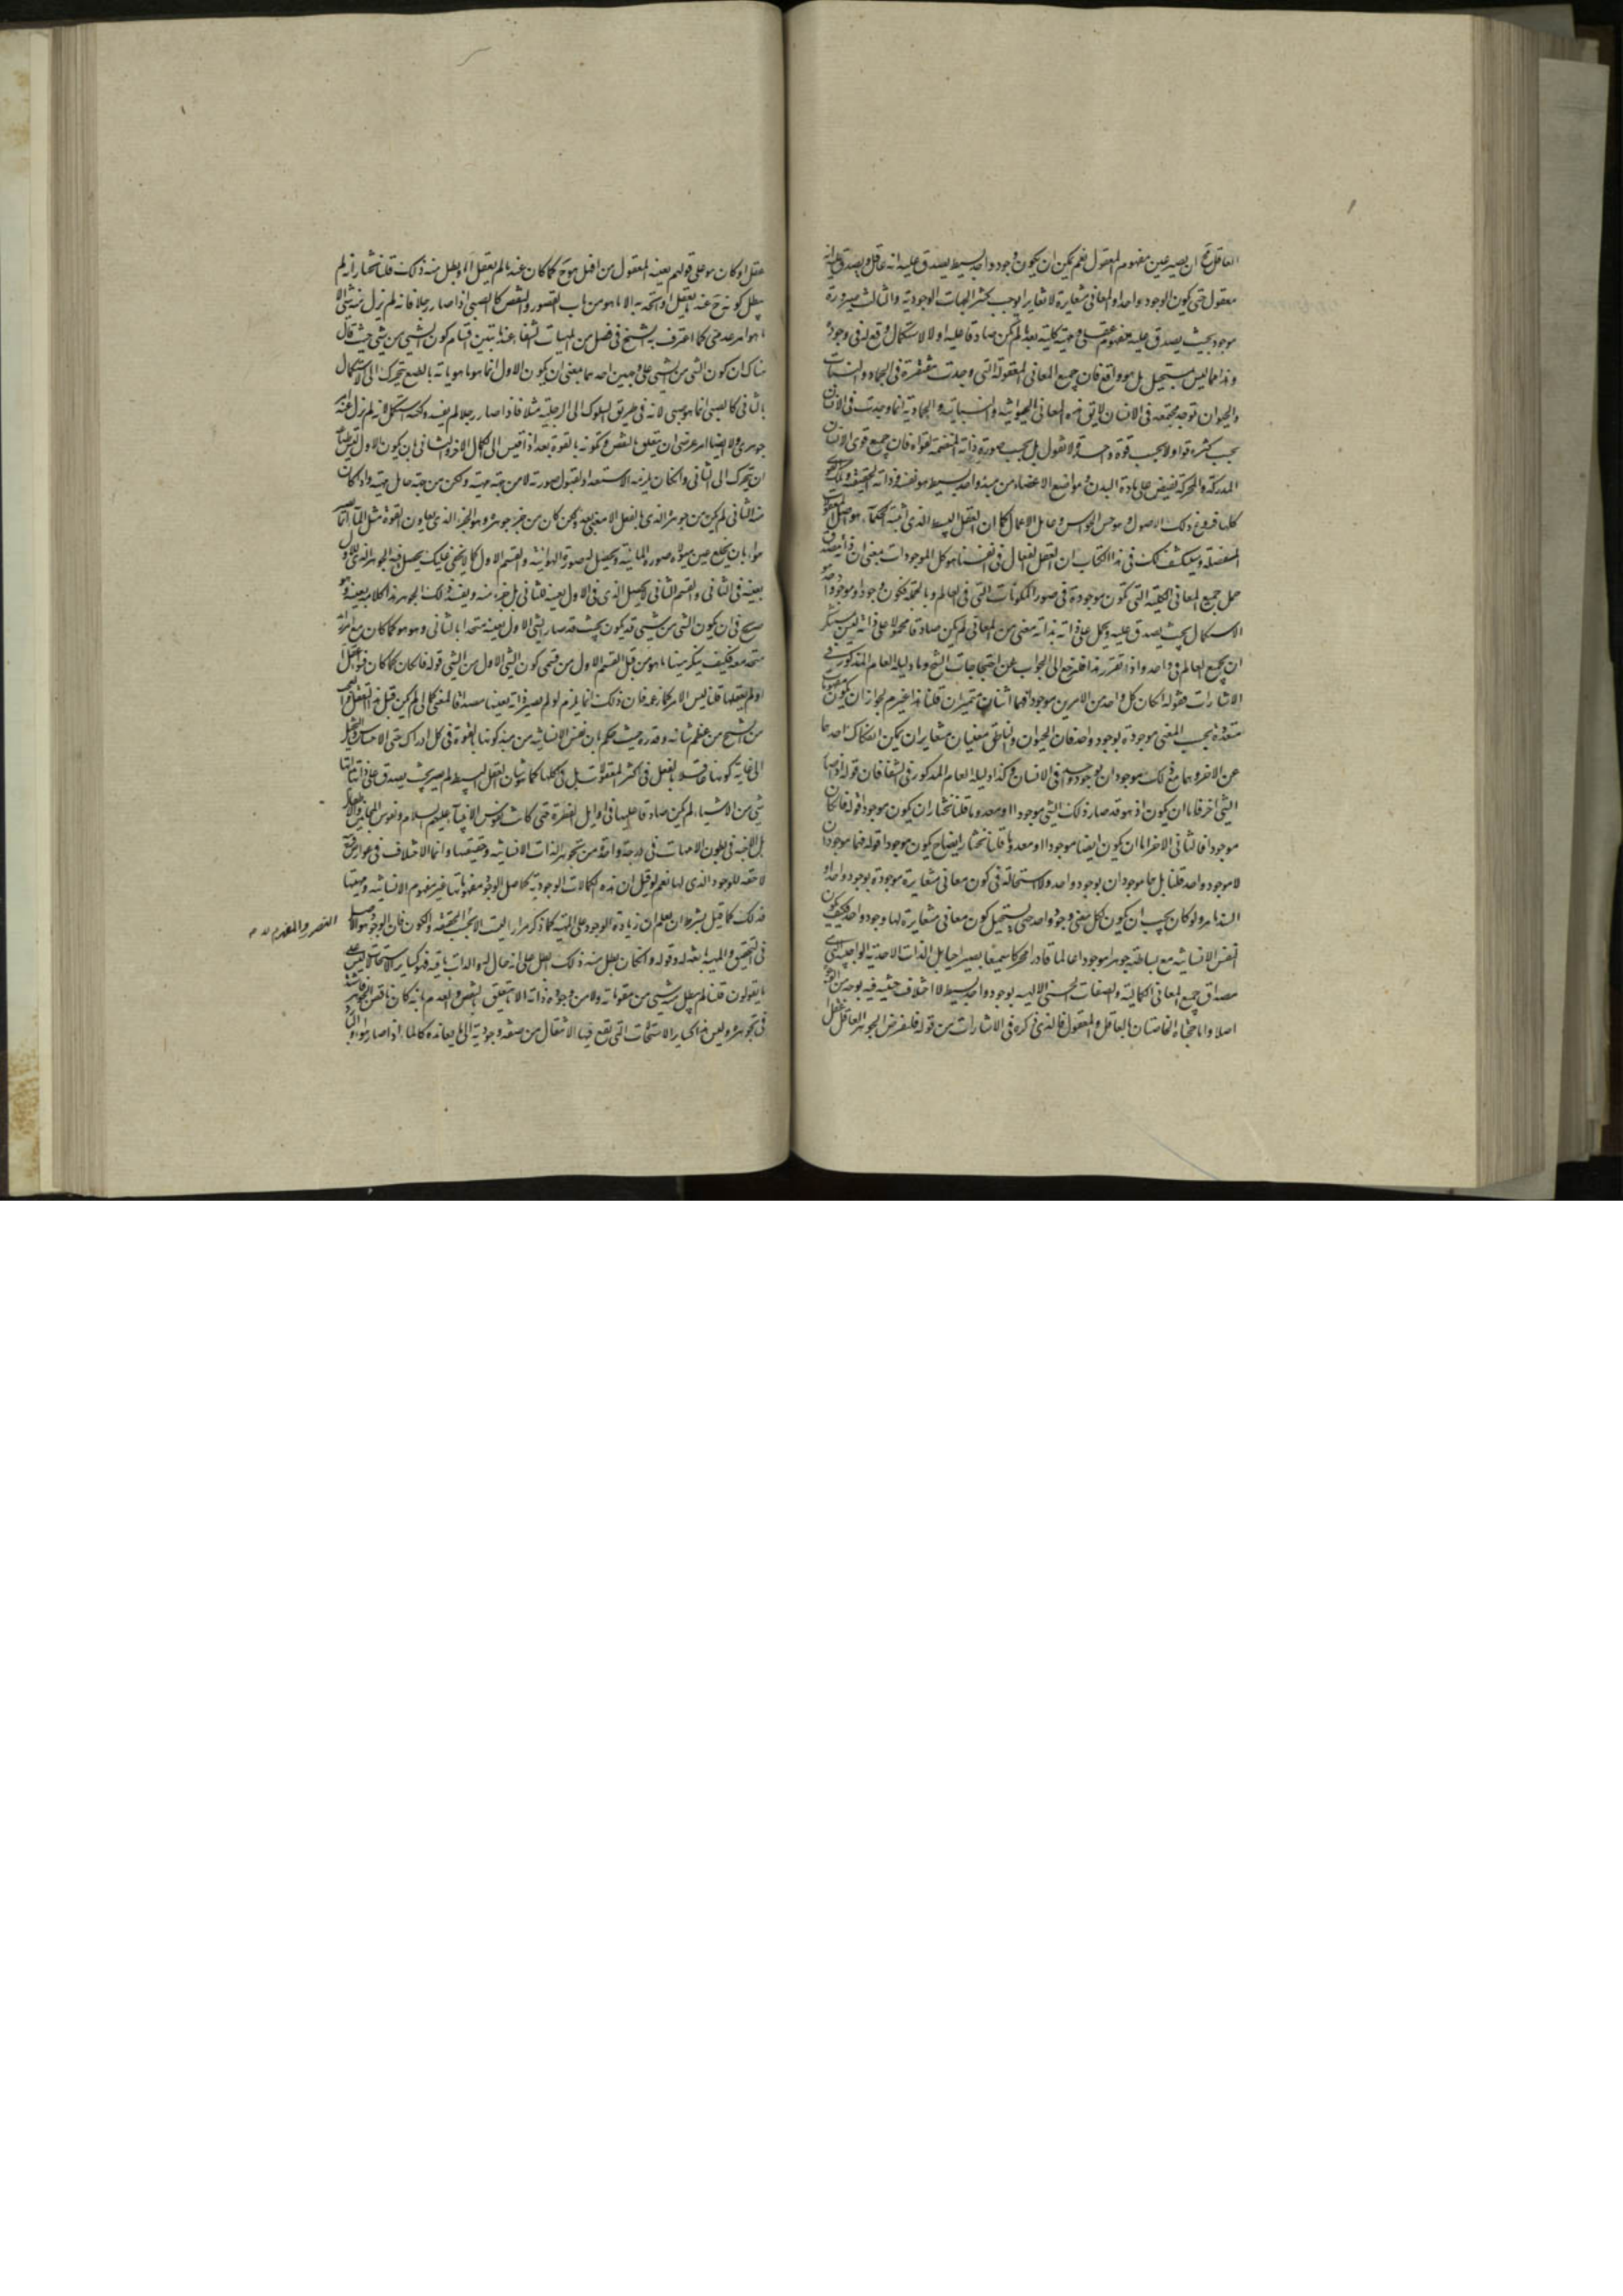 العاقل نعم ان يصير عين مفهوم المعقول نعم يمكن ان يكون وجود واحد بسيط يصدق عليه انه عاقل ويصدق عليه انه
معقول حتى يكون الوجود واحدا والمعانى متغايرة لا تغايرا يوجب تكثر الجهات الوجودية والثالث صيرورة
موجود بحيث يصدق عليه مفهوم عقلى ومهية كلية بعد ما لم يكن صادقا عليه اولا لاستكمال وقع له فى وجوده
وهذا مما ليس بمستحيل بل هو واقع فان جميع المعانى المعقولة التى وجدت متفرقة فى الجماد والنبات
والحيوان توجد مجتمعة فى الانسان لا يق هذه المعانى الحيوانية والنباتية والجمادية انما وجدت فى الانسان
بحسب كثرة قواه لا بحسب قوة واحدة لانا نقول بل بحسب صورة ذاته المتضمنة لقواه فان جميع قوى الانسان
المدركة والمحركة تفيض على مادة البدن ومواضع الاعضاء من مبدء واحد بسيط هو نفسه وذاته الحقيقية وتلك القوى
كلها فروع ذلك الاصل وهو حس الحواس وعامل الاعمال كما ان العقل البسيط الذى اثبته الحكماء هو اصل المعقولات
المفصلة وسينكشف لك فى هذا الكتاب ان العقل الفعال فى انفسنا هو كل الموجودات بمعنى ان ذاته مصداق
حمل جميع المعانى الكلية التى تكون موجودة فى صور المكونات التى فى العالم وبالجملة فكون وجود او موجود واحد
الاستكمال بحيث يصدق عليه ويحمل على ذاته بذاته معنى من المعانى لم يكن صادقا محمولا على ذاته ليس بمستنكر
ان يجمع العالم فى واحد واذا تقرر هذا فلنرجع الى الجواب عن احتجاجات الشيخ اما دليله العام المذكور فى
الاشارات فقوله ان كان كل واحد من الامرين موجودا فهما اثنان متميزان قلنا هذا غير لازم لجواز ان يكون مفهومات
متعددة بحسب المعنى موجودة بوجود واحد فان الحيوان والناطق معنيان متغايران يمكن انفكاك احدهما
عن الاخر وهما مع ذلك موجودان بوجود واحد فى الانسان وكذا دليله العام المذكور فى الشفا فان قوله اذا صار
الشئ اخر فاما ان يكون اذ هو قد صار ذلك الشئ موجودا او معدوما قلنا نختار ان يكون موجودا قوله فان كان
موجودا فالثانى الاخر اما ان يكون ايضا موجودا او معدوما قلنا نختار ايضا انه يكون موجودا قوله فهما موجودان
لا موجود واحد قلنا بل هما موجودان بوجود واحد ولا استحالة فى كون معانى متغايرة موجودة بوجود واحد او
السند امر ولو كان يجب ان يكون لكل معنى وجود واحد حتى يستحيل كون معانى متغايرة لها وجود واحد فكيف يكون
النفس الانسانية مع بساطته جوهرا موجودا عالما قادرا محركا سميعا بصيرا حيا بل الذات الاحدية الواجبية التى هى
مصداق جميع المعانى الكمالية والصفات الحسنى الالهية بوجود واحد بسيط لا اختلاف حيثية فيه بوجه من الوجوه
اصلا واما حجتاه الخاصتان بالعاقل والمعقول فالذى ذكره فى الاشارات من قوله فلنفرض الجوهر العاقل عقل ا
عقل ا وكان هو على قولهم بعينه المعقول من ا فهل هو ح كما كان عند ما لم يعقل ا او بطل منه ذلك قلنا نختار انه لم
يبطل كونه ح عند ما يعقل ا ويتحد به الا ما هو من باب القصور والنقص كالصبى اذا صار رجلا فانه لم يزل منه شئ الا
ما هو امر عدمى كما اعترف به الشيخ فى فصل من الهيات الشفا عند ما تبين اقسام كون الشئ من شئ حيث قال
هناك ان كون الشئ من الشئ على وجهين احدهما بمعنى ان يكون الاول انما هو ما هو بانه بالطبع يتحرك الى الاستكمال
بالثانى كالصبى انما هو صبى لانه فى طريق السلوك الى الرجلية مثلا فاذا صار رجلا لم يفسد ولكنه استكمل لانه لم يزل عنه امر
جوهرى ولا ايضا امر عرضى الا ما يتعلق بالنقص وبكونه بالقوة بعد اذا قيس الى الكمال الاخر والثانى بان يكون الاول ليس طباعه
ان يتحرك الى الثانى وان كان يلزمه الاستعداد لقبول صورته لا من جهة مهيته ولكن من جهة حامل مهيته واذا كان
منه الثانى لم يكن من جوهره الذى بالفعل الا بمعنى بعد ولكن كان من جزء جوهره وهو الجزء الذى يقارن القوة مثل الماء انما يصير
هواء بان يخلع عن هيولاه صورة المائية ويحصل لها صورة الهوائية والقسم الاول كما لا يخفى عليك يحصل فيه الجوهر الذى للاول
بعينه فى الثانى والقسم الثانى لا يحصل الذى فى الاول بعينه للثانى بل جزء منه ويفسد ذلك الجوهر هذا كلامه بعينه وهو
صريح فى ان يكون الشئ من شئ قد يكون بحيث قد صار الشئ الاول بعينه متحدا بالثانى وهو هو كما كان مع امر زائد
متحد معه فكيف ينكر هيهنا ما هو من قبل القسم الاول من قسمى كون الشئ الاول من الشئ قوله فان كان كما كان فسواء عقل ا
او لم يعقلها قلنا ليس الامر كما زعمه فان ذلك انما يلزم لو لم يصر ذاته بعينها مصداقا لمعنى كمالى لم يكن قبل هذا التعقل والعجب
من الشيخ مع عظم شانه وقدره حيث حكم بان نفس الانسانية من مبدء كونها بالقوة فى كل ادراك حتى الاحساس والتخيل
الى غاية كونها عاقلة بالفعل فى اكثر المعقولات بل فى كلها كما هو شان العقل البسيط لم يصر بحيث يصدق على ذاتها بذاتها
شئ من الاشياء لم يكن صادقا عليها فى اوايل الفطرة حتى كانت نفوس الانبياء عليهم السلام ونفوس المجانين والاطفال
بل الاجنة فى بطون الامهات فى درجة واحدة من تجوهر الذات الانسانية وحقيقتها وانما الاختلاف فى عوارض غريبة
لاحقة للوجود الذى لها نعم لو قيل ان هذه الكمالات الوجودية كاصل الوجود مفهوماتها غير مفهوم الانسانية ومهيتها
فذلك كما قيل بشرط ان يعلم ان زيادة الوجود على المهية كما ذكر مرارا ليست الا بحسب التصور والمفهوم لا بحسب الحقيقة والكون فان الوجود هو الاصل
فى التحقق والمهية تابعة له وقوله وان كان بطل منه ذلك ابطل على انه حال له والذات باقية فهو كساير الاستحالات ليس على
ما يقولون قلنا لم يبطل منه شئ من مقوماته ولا من وجود ذاته الا ما يتعلق بالنقص والعدم بانه كان ناقص الجوهر فاشتد
فى تجوهره وليس هذا كساير الاستحالات التى تقع فيها الانتقال من صفة وجودية الى ما يعانده كالماء اذا صار هواء والبارد